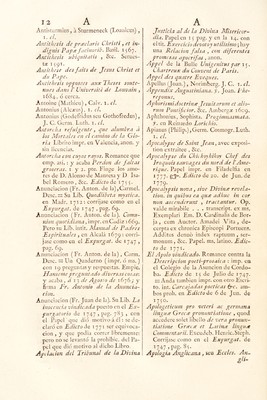 12 A
Antimernides, à Sturmeneck (Louuicus),
1. cl.
Antithesis de praeclaris Christi, et in-
dignis Papa facinorib. Basil. 1567.
Antithesis ubiquitatis, &c. Senuen-
se 1591.
Antithesis des faits de Jesus Christ et
du Pape.
Antithesis oppostes aux Theses soute-
nues dans l' Université de Louuain,
1684, ó cerca.
Antoine (Mathieu), Calv. 1. cl.
Antonian (Alvaro), 1. cl.
Antonius (Godefridus seu Gothofredus),
J. C. Germ. Luth. 1. cl.
Antorcha refulgente, que alumbra á
los Mortales en el camino de la Glo-
ria. Libro impr. en Valencia, anot. y
sin licencias.
Autoreba con cuyos rayos. Romance que
emp. así, y acaba Perdon de faltas
groseras. 1 y 2. pte. Finge los amo-
res de D. Alonso de Monroy y D. Isa-
bel Romero, &c. Edicto de 1750.
Anunciacion (Fr. Anton. de la), Carmel.
Desc. tt: Su Lib. Quodlibeta mystica,
en Mad. 1712: corrijase como en el
Expurgat. de 1747, pag. 69.
Anunciacion (Fr. Anton. de la). Comu-
nion quotidiana, impr. en Cadiz 1665.
Pero su Lib. intit. Manual de Padres
Espirituales, en Alcalá 1679: corri-
jase como en el Expurgat. de 1747,
pag. 69.
Anunciacion (Fr. Anton. de la), Conv.
Desc. tt: Un Quaderno (impr. ó ms.),
con 19 preguntas y respuestas. Empie,
Haueme preguntado diversas cosas,
y acaba, á 15 de Agosto de 1676, y
firma Fr. Antonio de la Anuncia-
cion.
Anunciacion (Fr. Juan de la). Su Lib. La
inocencia vindicada puesto en el Ex-
purgatorio de 1747, pag. 783, con
el Papel que dió motivo á él: se de-
claró en Edicto de 1771 ser equivoca-
cion, y que podia correr libremente;
pero no se levantó la prohibic. del Pa-
pel que dió motivo al dicho Libro.
Apelacion del Tribunal de la Divina
A
Justicia al de la Divina Misericor-
dia. Papel en 15 pag. y en la 14. con
el tít. Exercicio devoto utilisimo; hay
una Relacion falsa, con diferentia
promesas apocrifas, anon.
Appel de la Bulle Unigenitus par 15.
Docteurs du Concent de Paris.
Appel des quatre Eveques.
Apelles (Joan.), Noremberg. J. C. 1. cl.
Appendix Augustiniana. V. Joan. Phe-
reponus.
Aphorismi doctrina Jesuitarum et alio-
rum Pontificior. &c. Ambergo 1609.
Aphthonius, Sophista. Progymnasmata.
V. en Reinardo Lorichio.
Apianus (Philip.), Germ. Cosmogr. Luth.
1. cl.
Apocalypse de Saint Jean, avec exposi-
tion extraites, &c.
Apocalypse du Chá Sophion Chef des
Iroquois sauvages du nord de l'Ame-
rique. Papel impr. en Filadelfia en
1777. Edicto de 20. de Jun. de
1779.
Apocalypsis nova, sive Divinae revela-
tiones, in quibus ea quae adhuc in car-
nem ascenderunt, tractantur. Op.
valde notabile . . . . transcript. ex ms.
Exemplari Em. D. Cardinalis de Bor-
ja, cum Auctor. Amadei Vita, de-
cerpta ex chronico Episcopi Portuens.
Additus demis índex capitum, ser-
monum, &c. Papel ms. latino. Edic-
to de 1771.
El Apolo vindicado. Romance contra la
Descripcion poeti-prosaica: impr. en
el Colegio de la Asuncion de Cordo-
ba. Edicto de 13 de Junio de 1747.
tt Anda tambien impr. con otro Escri-
to int. Carcajadas poeticas &c. am-
bos prob. en Edicto de 6 de Jun. de
1750.
Apologeticum pro veteri ac germana
linguae Graecae pronuntiatione, quod
accedere solet libello de vera pronun-
tiatione Graecae et Latinae linguae
Commentarii. Execudeb. Henric. Steph.
Corrijase como en el Expurgat. de
1747, pag. 83.
Apologia Anglicana, seu Eccles. An-
gli-